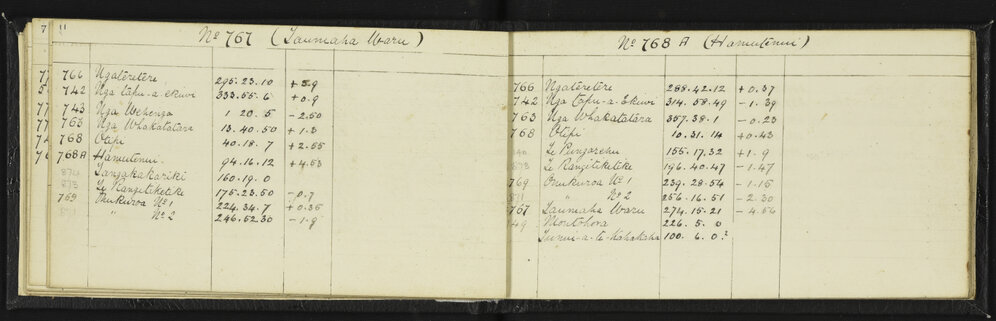 No 767 (Taumaha Waru)
766 Ngatêretêre 295.23.10
742 Nga tapu-a-ekiwi 333.55.6 +0.9
743 Nga Wehenga 1 20.5 -2.50
763 Nga Whakatatara 13.40.50 +1.3
768 Otipi 40.18.7 +2.55
768A Hamutenui 94.16.12 +4.53
Tangakakariki 160.19.0
873 Te Rangitiketike 175.23.50 -0.7
769 Onukuroa No 1 224.34.7 +0.35
" No 2 246.52.30 -1.9
No 768 A (Hamutenui)
766 Ngatêretêre 288.42.12 +0.37
742 Nga Tapu-a-Ekiwi 314.58.49 -1.39
763 Nga Whakatatara 357.38.1 -0.23
768 Otipi 10.31.14 +0.43
Te Pungarehu 155.17.32 +1.9
873 Te Rangitiketike 196.40.47 -1.47
769 Onukuroa No 1 239.28.54 -1.15
" No 2 256.16.51 -2.30
767 Taumaha Waru 274.15.21 -4.56
Moutohora 226.5.0
100.6.0?